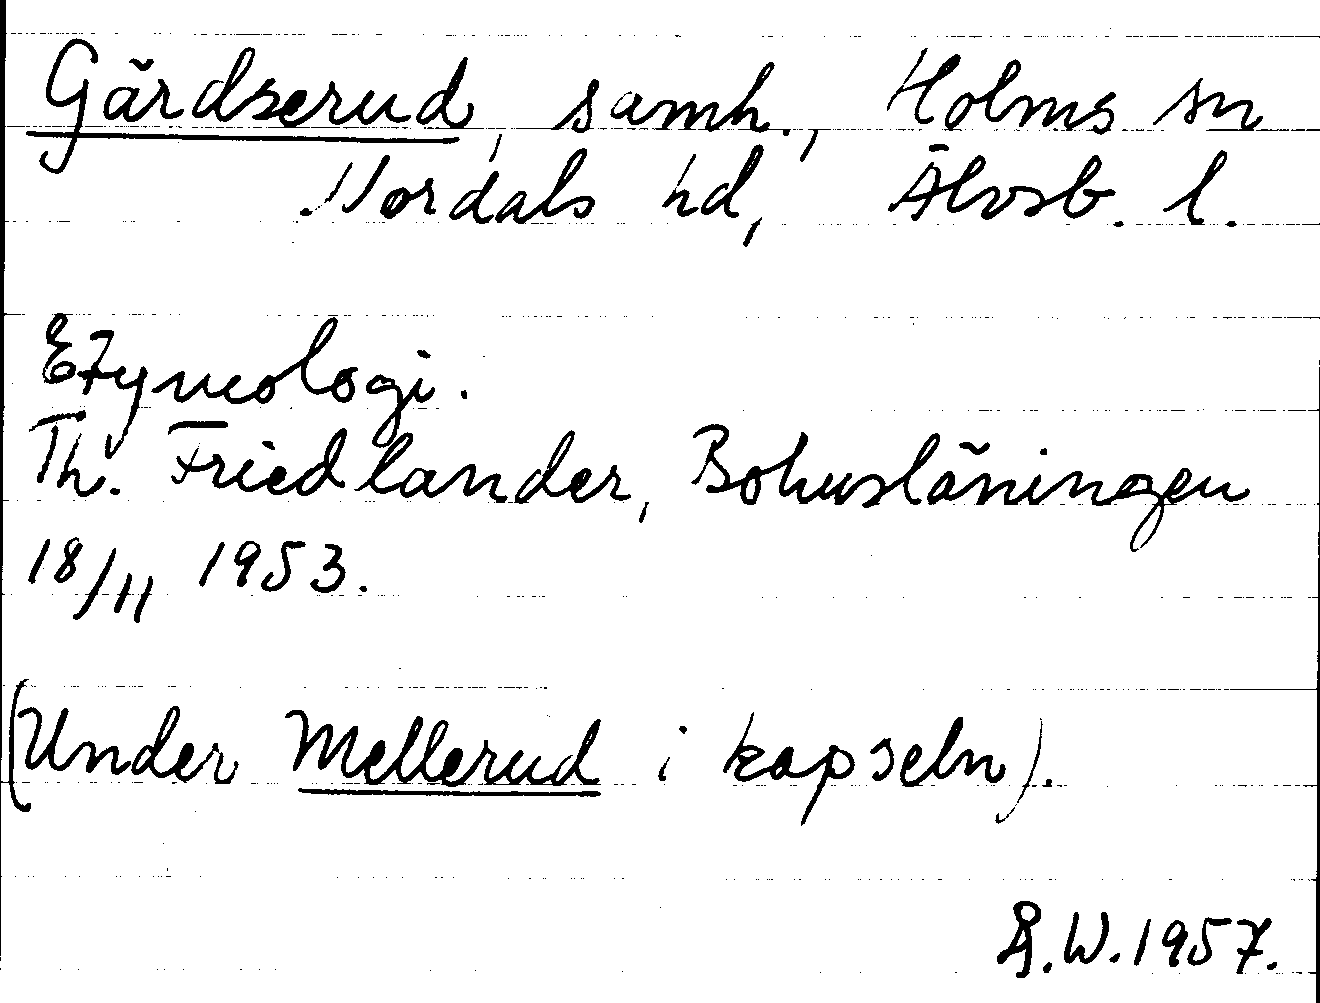 Gärdserud, samh., Holms sn
Nordals hd, Älvsb. l.
Etymologi.
Th. Friedlander, Bohusläningen
18/11 1953.
(Under Mellerud i kapseln).
Å.W. 1957.